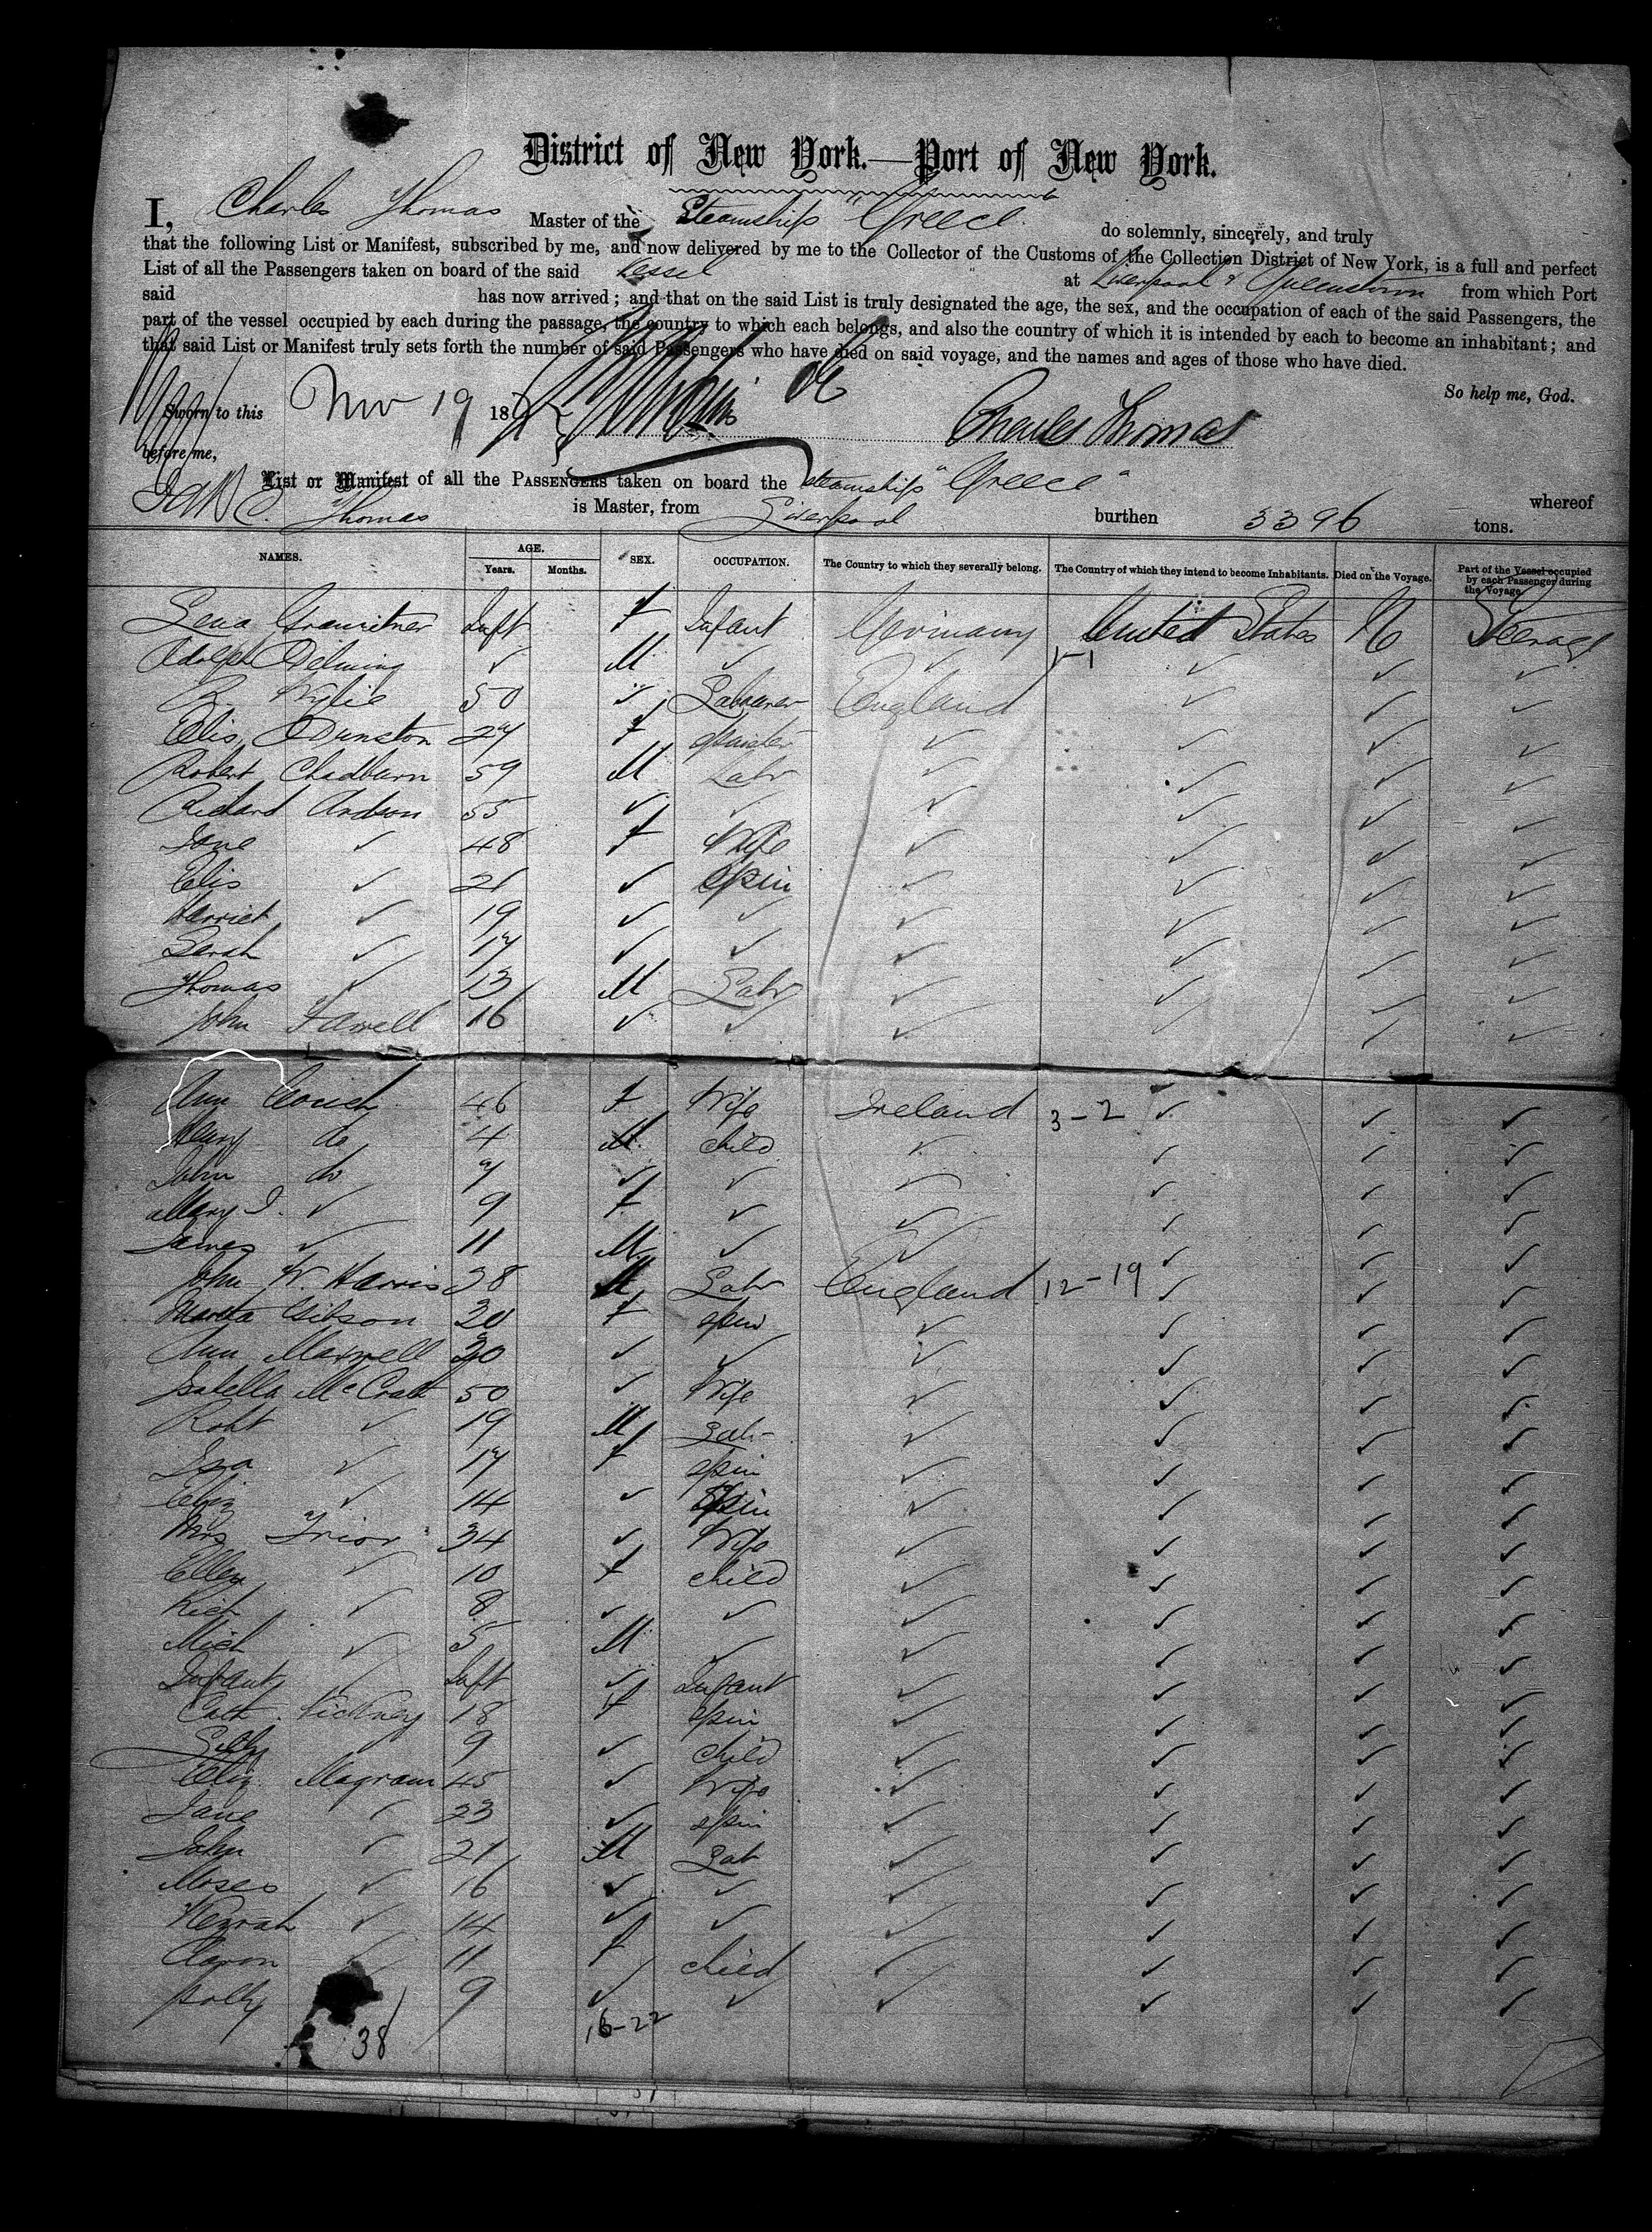 District of New York.—Port of New York.
I, Charles Thomas Master of the Steamship "Greece do solemnly, sincerely, and truly
that the following List or Manifest, subscribed by me, and now delivered by me to the Collector of the Customs of the Collection District of New York, is a full and perfect
List of all the Passengers taken on board of the said Vessel at Liverpool & Queenstown from which Port
said has now arrived; and that on the said List is truly designated the age, the sex, and the occupation of each of the said Passengers, the
part of the vessel occupied by each during the passage, the country to which each belongs, and also the country of which it is intended by each to become an inhabitant; and
that said List or Manifest truly sets forth the number of said Passengers who have died on said voyage, and the names and ages of those who have died.
So help me, God.
Sworn to this Nov 19 18 Charles Thomas
before me,
List or Manifest of all the PASSENGERS taken on board the Steamship "Greece" whereof
Thomas is Master, from Liverpool burthen 3396 tons.
NAMES. AGE. Years. Months. SEX. OCCUPATION. The Country to which they severally belong. The Country of which they intend to become Inhabitants. Died on the Voyage. Part of the Vessel occupied by each Passenger during the Voyage
Lena Inft f Infant Germany United States No Steerage
Adolph ✓ M ✓ ✓ 1-1 ✓ ✓ ✓
Wylie 50 ✓ Labourer England ✓ ✓ ✓
Elis Dunston 27 f spinster ✓ ✓ ✓ ✓
Robert Chadburn 59 M Labr ✓ ✓ ✓ ✓
Richard Andson 55 ✓ ✓ ✓ ✓ ✓ ✓
Jane ✓ 48 f Wife ✓ ✓ ✓ ✓
Elis ✓ 21 ✓ spin ✓ ✓ ✓ ✓
Harriet ✓ 19 ✓ ✓ ✓ ✓ ✓ ✓
Sarah ✓ 17 ✓ ✓ ✓ ✓ ✓ ✓
Thomas ✓ 13 M Labr ✓ ✓ ✓ ✓
John Fawell 16 ✓ ✓ ✓ ✓ ✓ ✓
Ann 46 f Wife Ireland 3-2 ✓ ✓ ✓
Henry do 4 M child ✓ ✓ ✓ ✓
John do 7 ✓ ✓ ✓ ✓ ✓ ✓
Mary J. ✓ 9 f ✓ ✓ ✓ ✓ ✓
James ✓ 11 M ✓ ✓ ✓ ✓ ✓
John W. Harris 38 M Labr England 12-19 ✓ ✓ ✓
Martha Gibson 20 f spin ✓ ✓ ✓ ✓
Ann Maxwell 30 ✓ ✓ ✓ ✓ ✓ ✓
Isabella 50 ✓ Wife ✓ ✓ ✓ ✓
Robt ✓ 19 M Labr ✓ ✓ ✓ ✓
Isa ✓ 17 f spin ✓ ✓ ✓ ✓
Eliz ✓ 14 ✓ spin ✓ ✓ ✓ ✓
Mrs Frior 34 ✓ Wife ✓ ✓ ✓ ✓
Ellen ✓ 10 f child ✓ ✓ ✓ ✓
Rich ✓ 8 ✓ ✓ ✓ ✓ ✓ ✓
Mich ✓ 5 M ✓ ✓ ✓ ✓ ✓
Infant ✓ Inft ✓ Infant ✓ ✓ ✓ ✓
Cath. Vickney 18 f spin ✓ ✓ ✓ ✓
9 ✓ child ✓ ✓ ✓ ✓
Eliz Magram 45 ✓ Wife ✓ ✓ ✓ ✓
Jane ✓ 23 ✓ spin ✓ ✓ ✓ ✓
John ✓ 21 M Lab ✓ ✓ ✓ ✓
Moses ✓ 16 ✓ ✓ ✓ ✓ ✓ ✓
✓ 14 ✓ ✓ ✓ ✓ ✓ ✓
Aaron ✓ 11 f child ✓ ✓ ✓ ✓
Polly 9 ✓ ✓ ✓ ✓ ✓ ✓
38 16-22